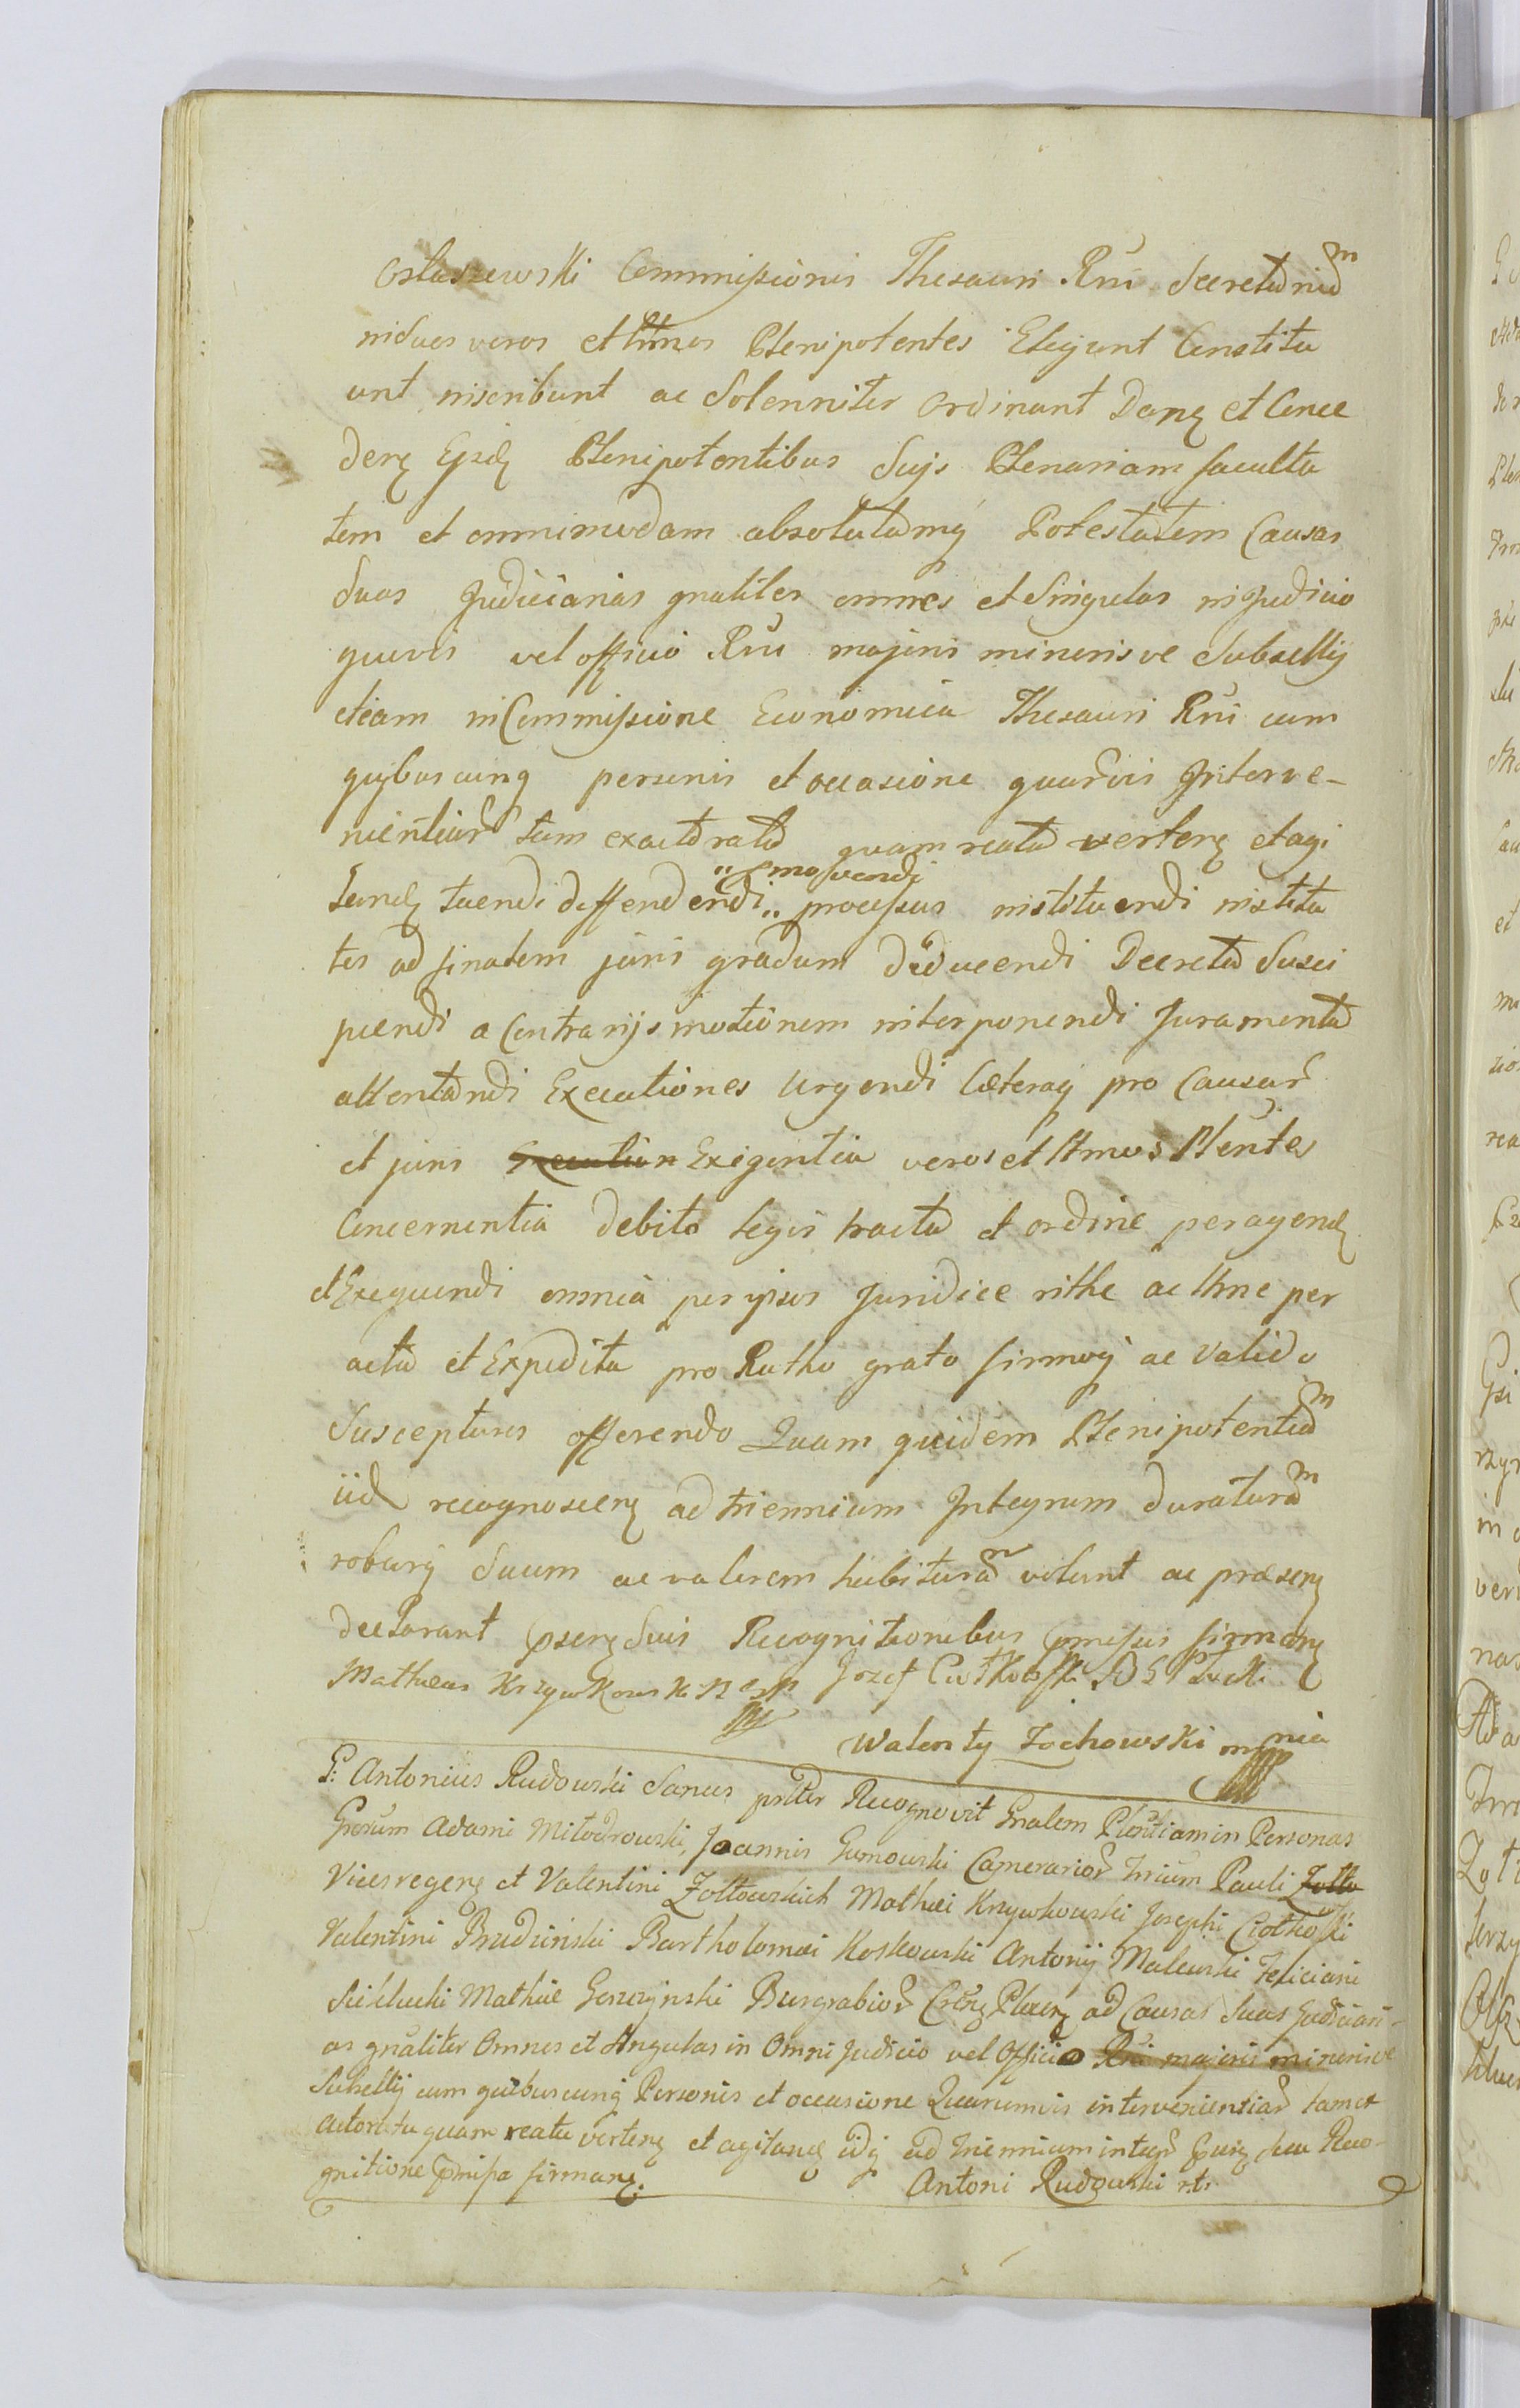 Ostaszewski Commissionis Thesauri Rni Secretarium
in suos veros et lttmos Plenipotentes Elegunt Constitu
unt inscribunt ac Solenniter Ordinant Danẽ et Conce
denẽ Eisd Plenipotentibus Suijs Plenariam faculta
tem et omnimodam absolutamq Potestatem Causas
Suas Judiciarias gnaliter omnes et Singulas in Judicio
quovis vel officio Rni majoris minorisve Subsellij
etiam in Commissione Economica Thesauri Rni cum
quibuscunq personis et occasione quarvis Interve-
nientiar tam ex actoratu quam reatu verteñ et agi
tand tuendi deffendendi promovendi processus instituendi institu
tos ad finalem juris gradum deducendi Decreta Susci
piendi a Contrarijs motionem interponendi Juramenta
attentandi Executiones Urgendi Cæteraq pro Causar
et juris Execution Exigentia veros et lttmos Plentes
Concernentia debito legis tractu et ordine peragend
et Exequendi omnia per ipsos Juridice rithe ac lttme per
acta et Expedita pro Ratho grato firmoq ac valido
Suscepturos offerendo Quam quidem Plenipotentiam
iid recognosceñ ad triennium Integrum duraturam
roburq Suum ac valorem habituram volunt ac præseñ
declarant Pseñ Suis Recognitionibus pmissis firmañ
Matheus Krzywkowski Jozef Ciołkowski
Walenty Żochowski mpria
G. Antonius Rudowski Sanus pstter Recognovit Gnalem Plentiam in Personas
Gsorum Adami Miłodrowski, Joannis Gumowski Camerarior Trium Pauli Zołto
Vicesregeñ et Valentini Zołtowskich Mathei Krzywkowski Josephi Ciołkowski
Valentini Brudzinski Bartholomæi Koskowski Antonij Malewski Feliciani
Mathiæ Goszczynski Burgrabior Creñ Ploceñ ad Causas Suas Judiciari-
as gnaliter Omnes et Singulas in Omni Judicio vel Officio Rni majoris minorisve
Subsellij cum quibuscunq Personis et occasione Quarumvis intervenientiar tam ex
actoratu quam reatu verteñ et agitand iidq ad Triennium integr Sua Reco-
gnitione pmissa firmañ.
Antoni Rudowski